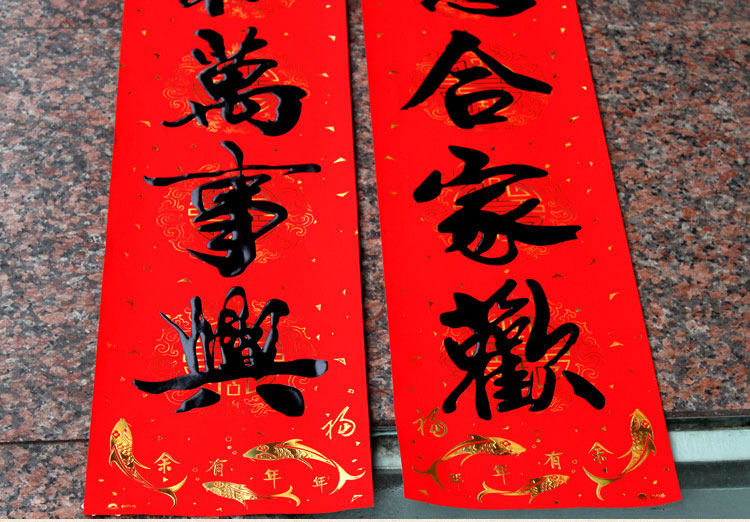 合家歡
福
年年有余
萬事興
福
年年有余